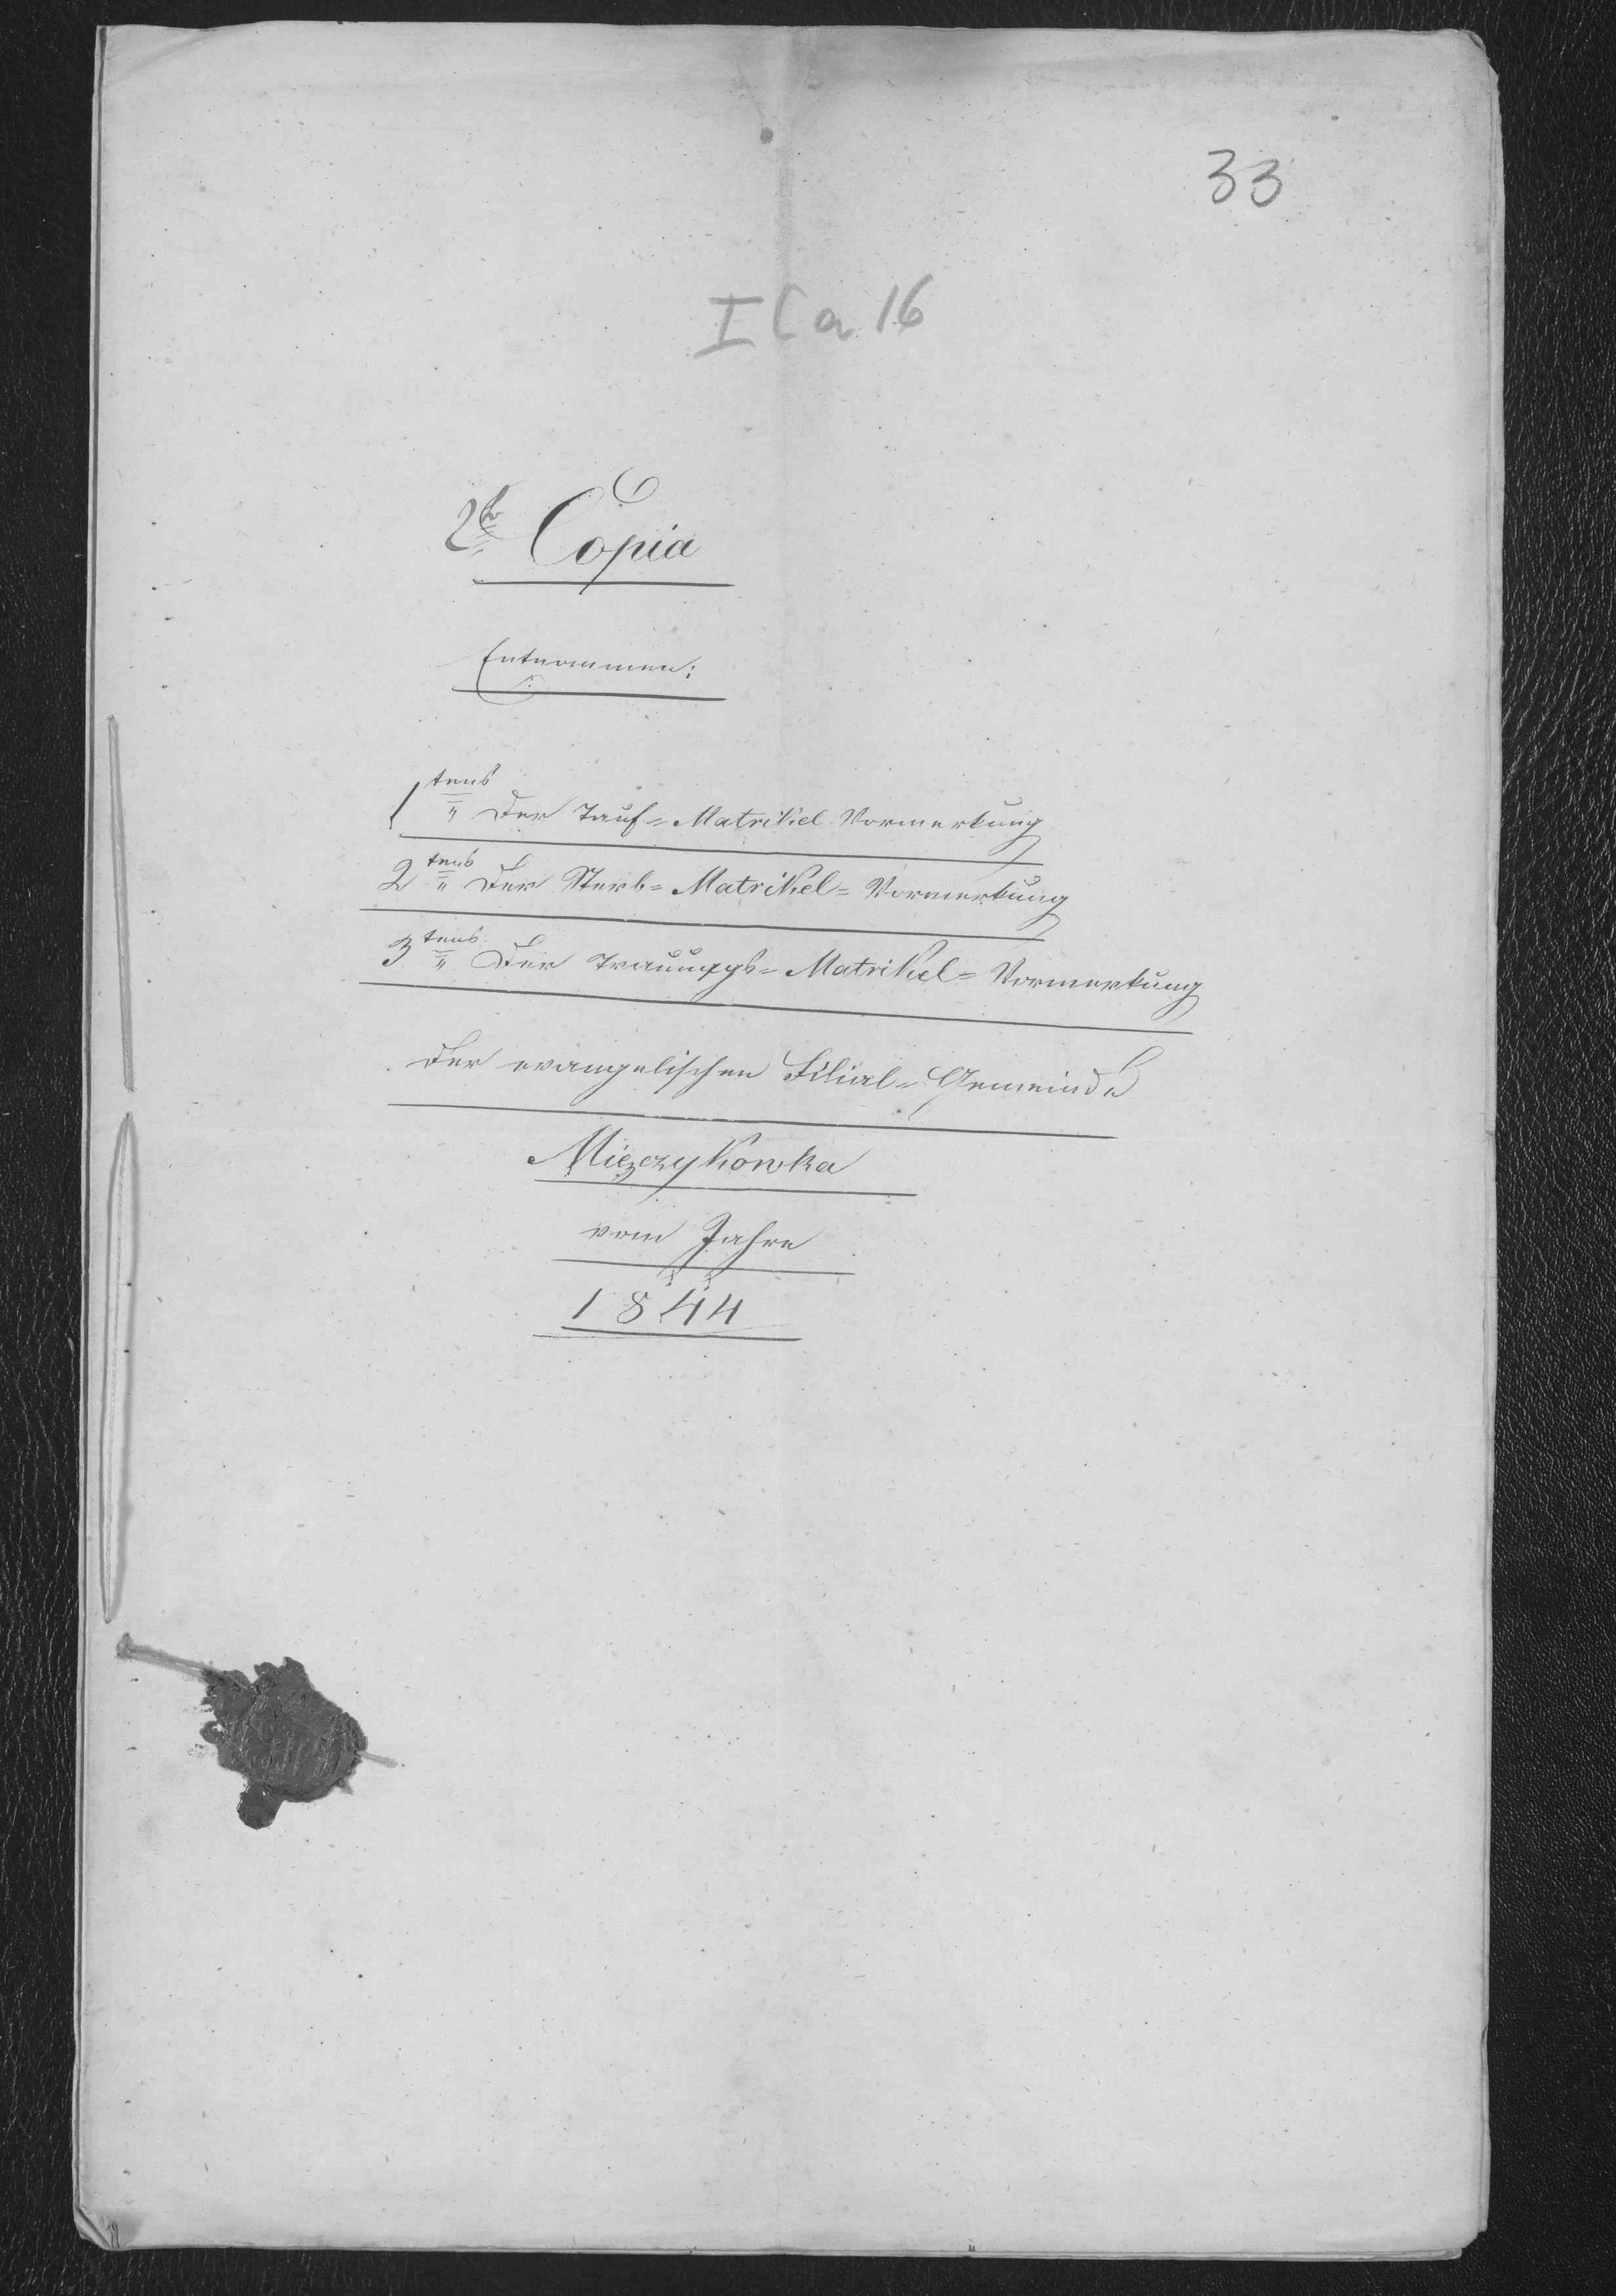 33
I C a 16
2te Copia
Entnommen:
1tens Der Tauf=Matrikel Vormerkung
2tens Der Sterb=Matrikel=Vormerkung
3tens Der Trauungs=Matrikel=Vormerkung
der evangelischen Filial=Gemeinde
Mięzykowka
vom Jahre
1844